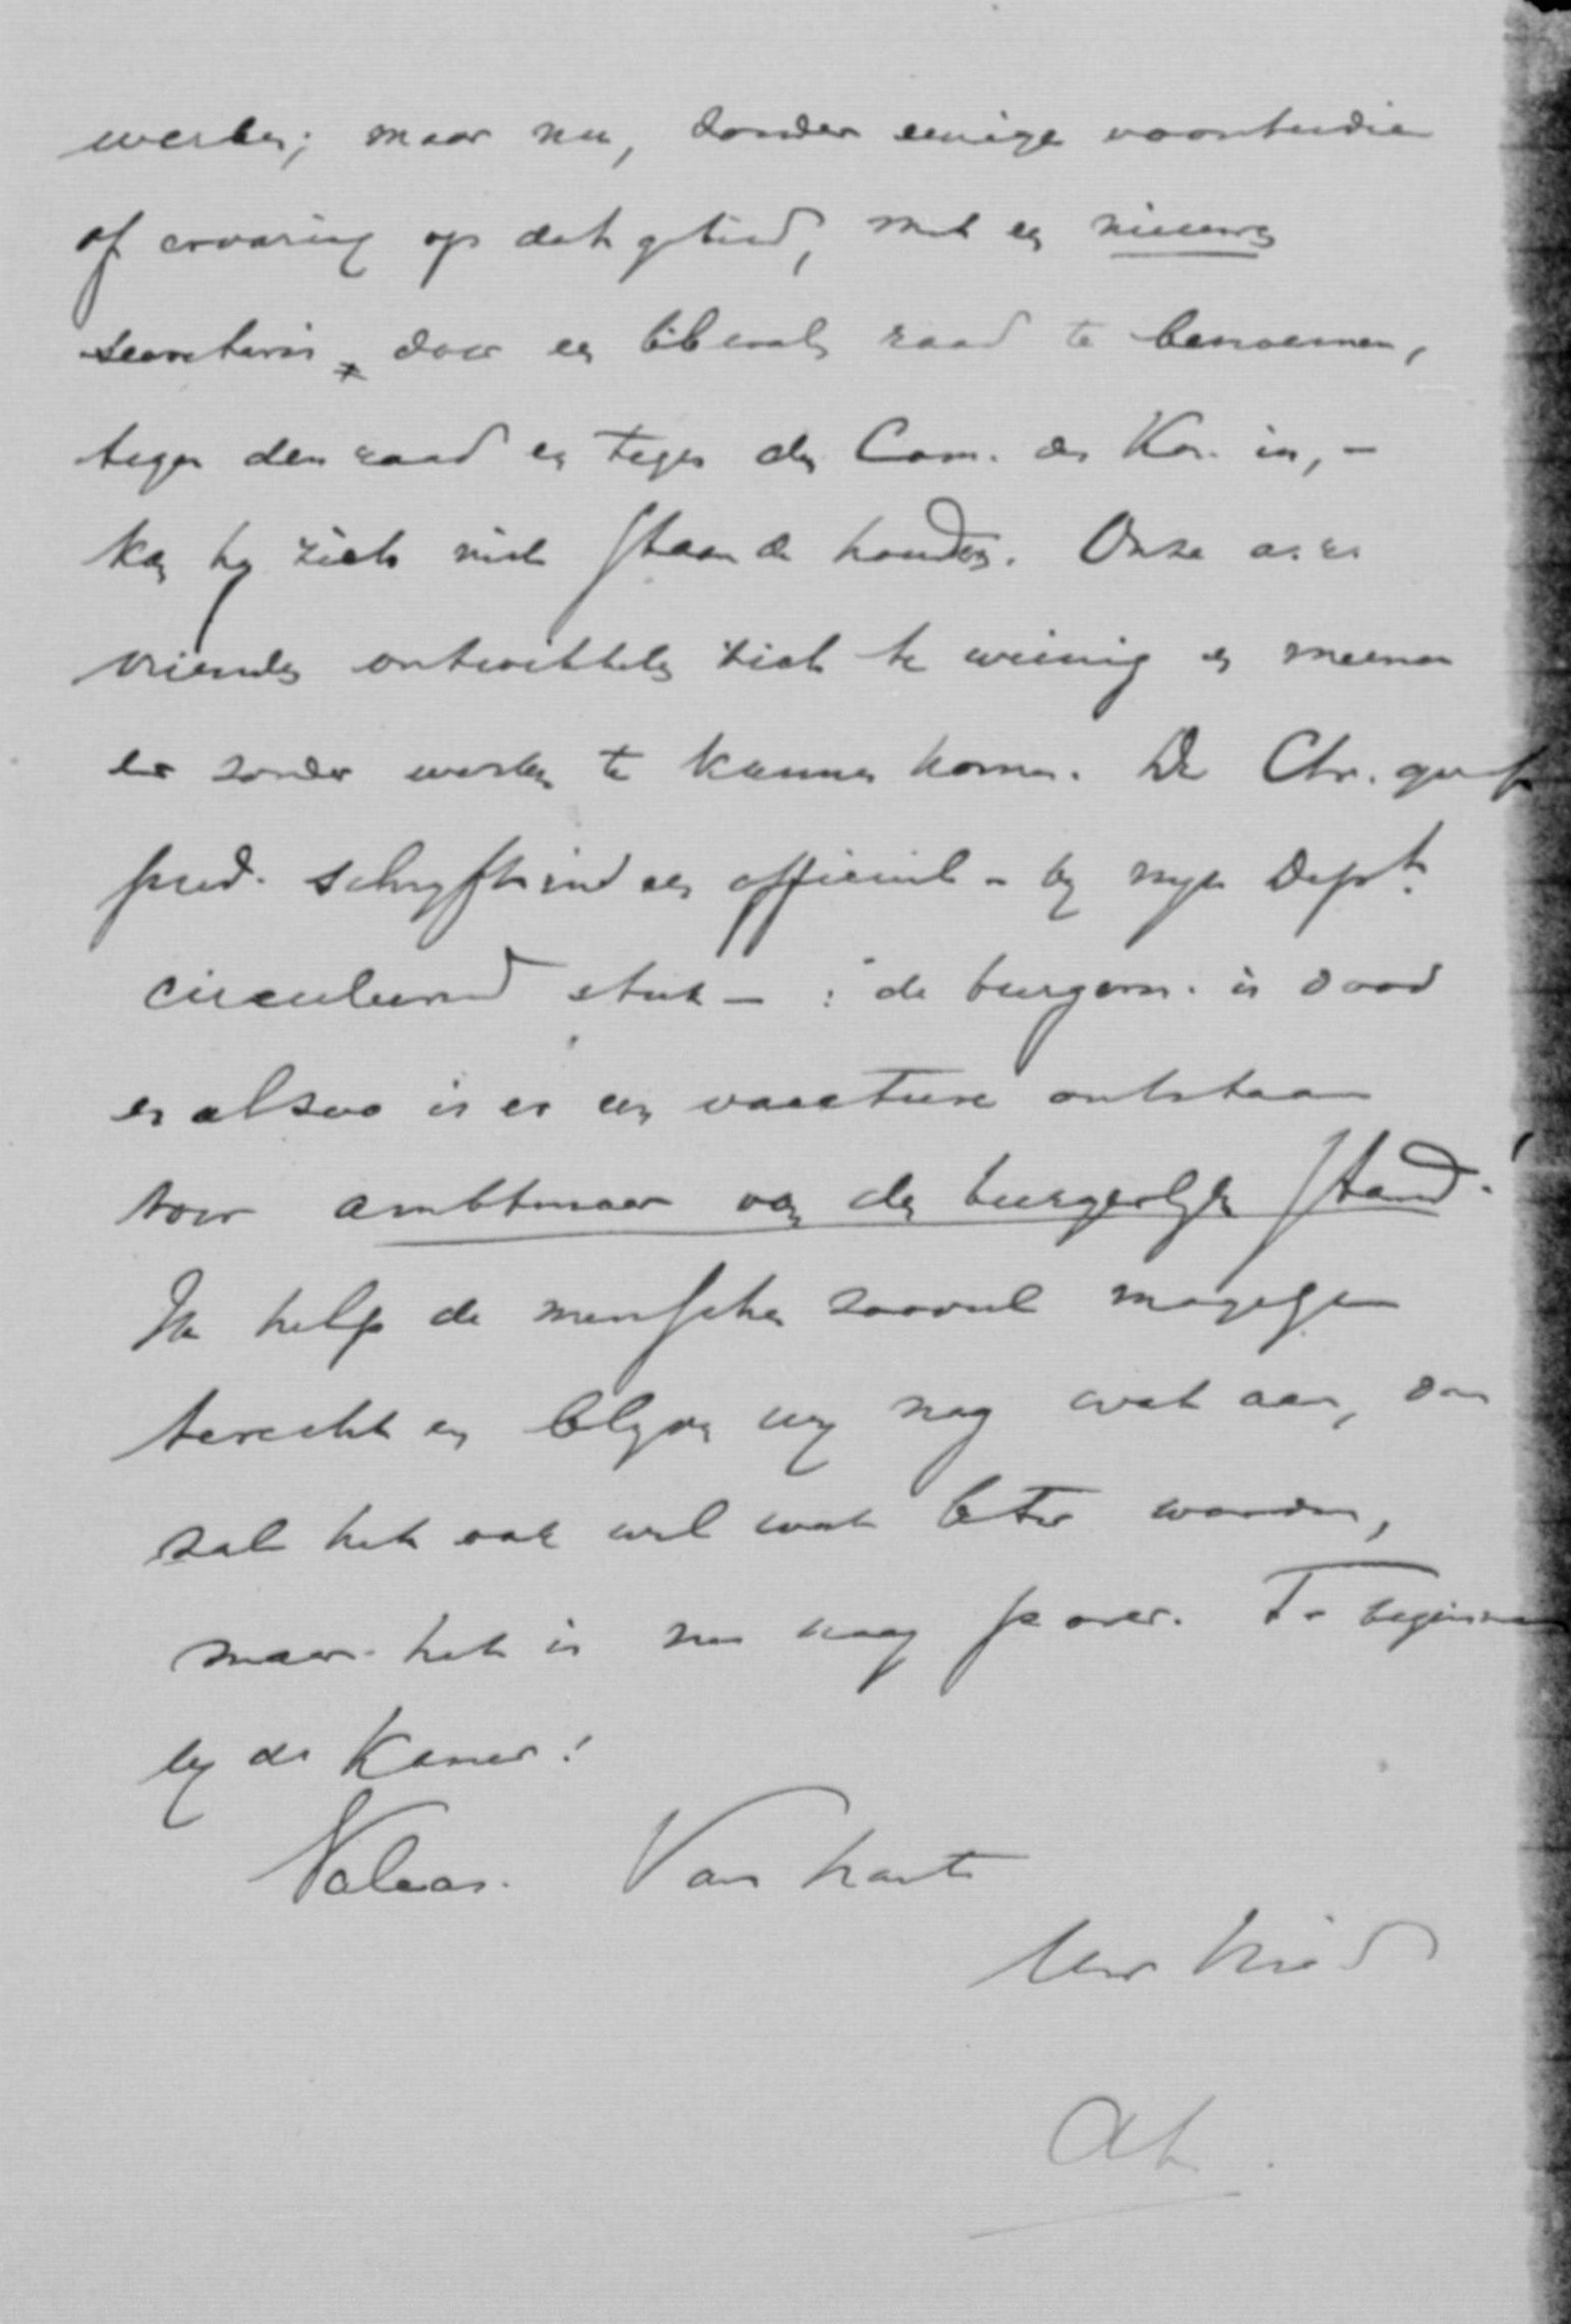 werken; maar nu, zonder eenige voorstudie
of ervaring op dat gebied, met een nieuwen
secretaris, door een liberalen raad te benoemen,
tegen den raad en tegen den Com. der Kon. in, -
kan hij zich niet staande houden. Onze a.r.
vrienden ontwikkelen zich te weinig en meenen
er zonder werken te kunnen komen. De Chr.
schrijft in een officieel - bij mijn Dept.
circuleerend stuk - : "de burgem. is dood
en alzoo is er een vacature ontstaan
voor ambtenaar van den burgerlijken stand."
Ik help de menschen zooveel mogelijk
terecht en blijven wij nog wat aan, dan
zal het ook wel wat beter worden,
maar het is nu nog pover. Te beginnen
bij de Kamer!
Valeas. Van harte
Uw vriend